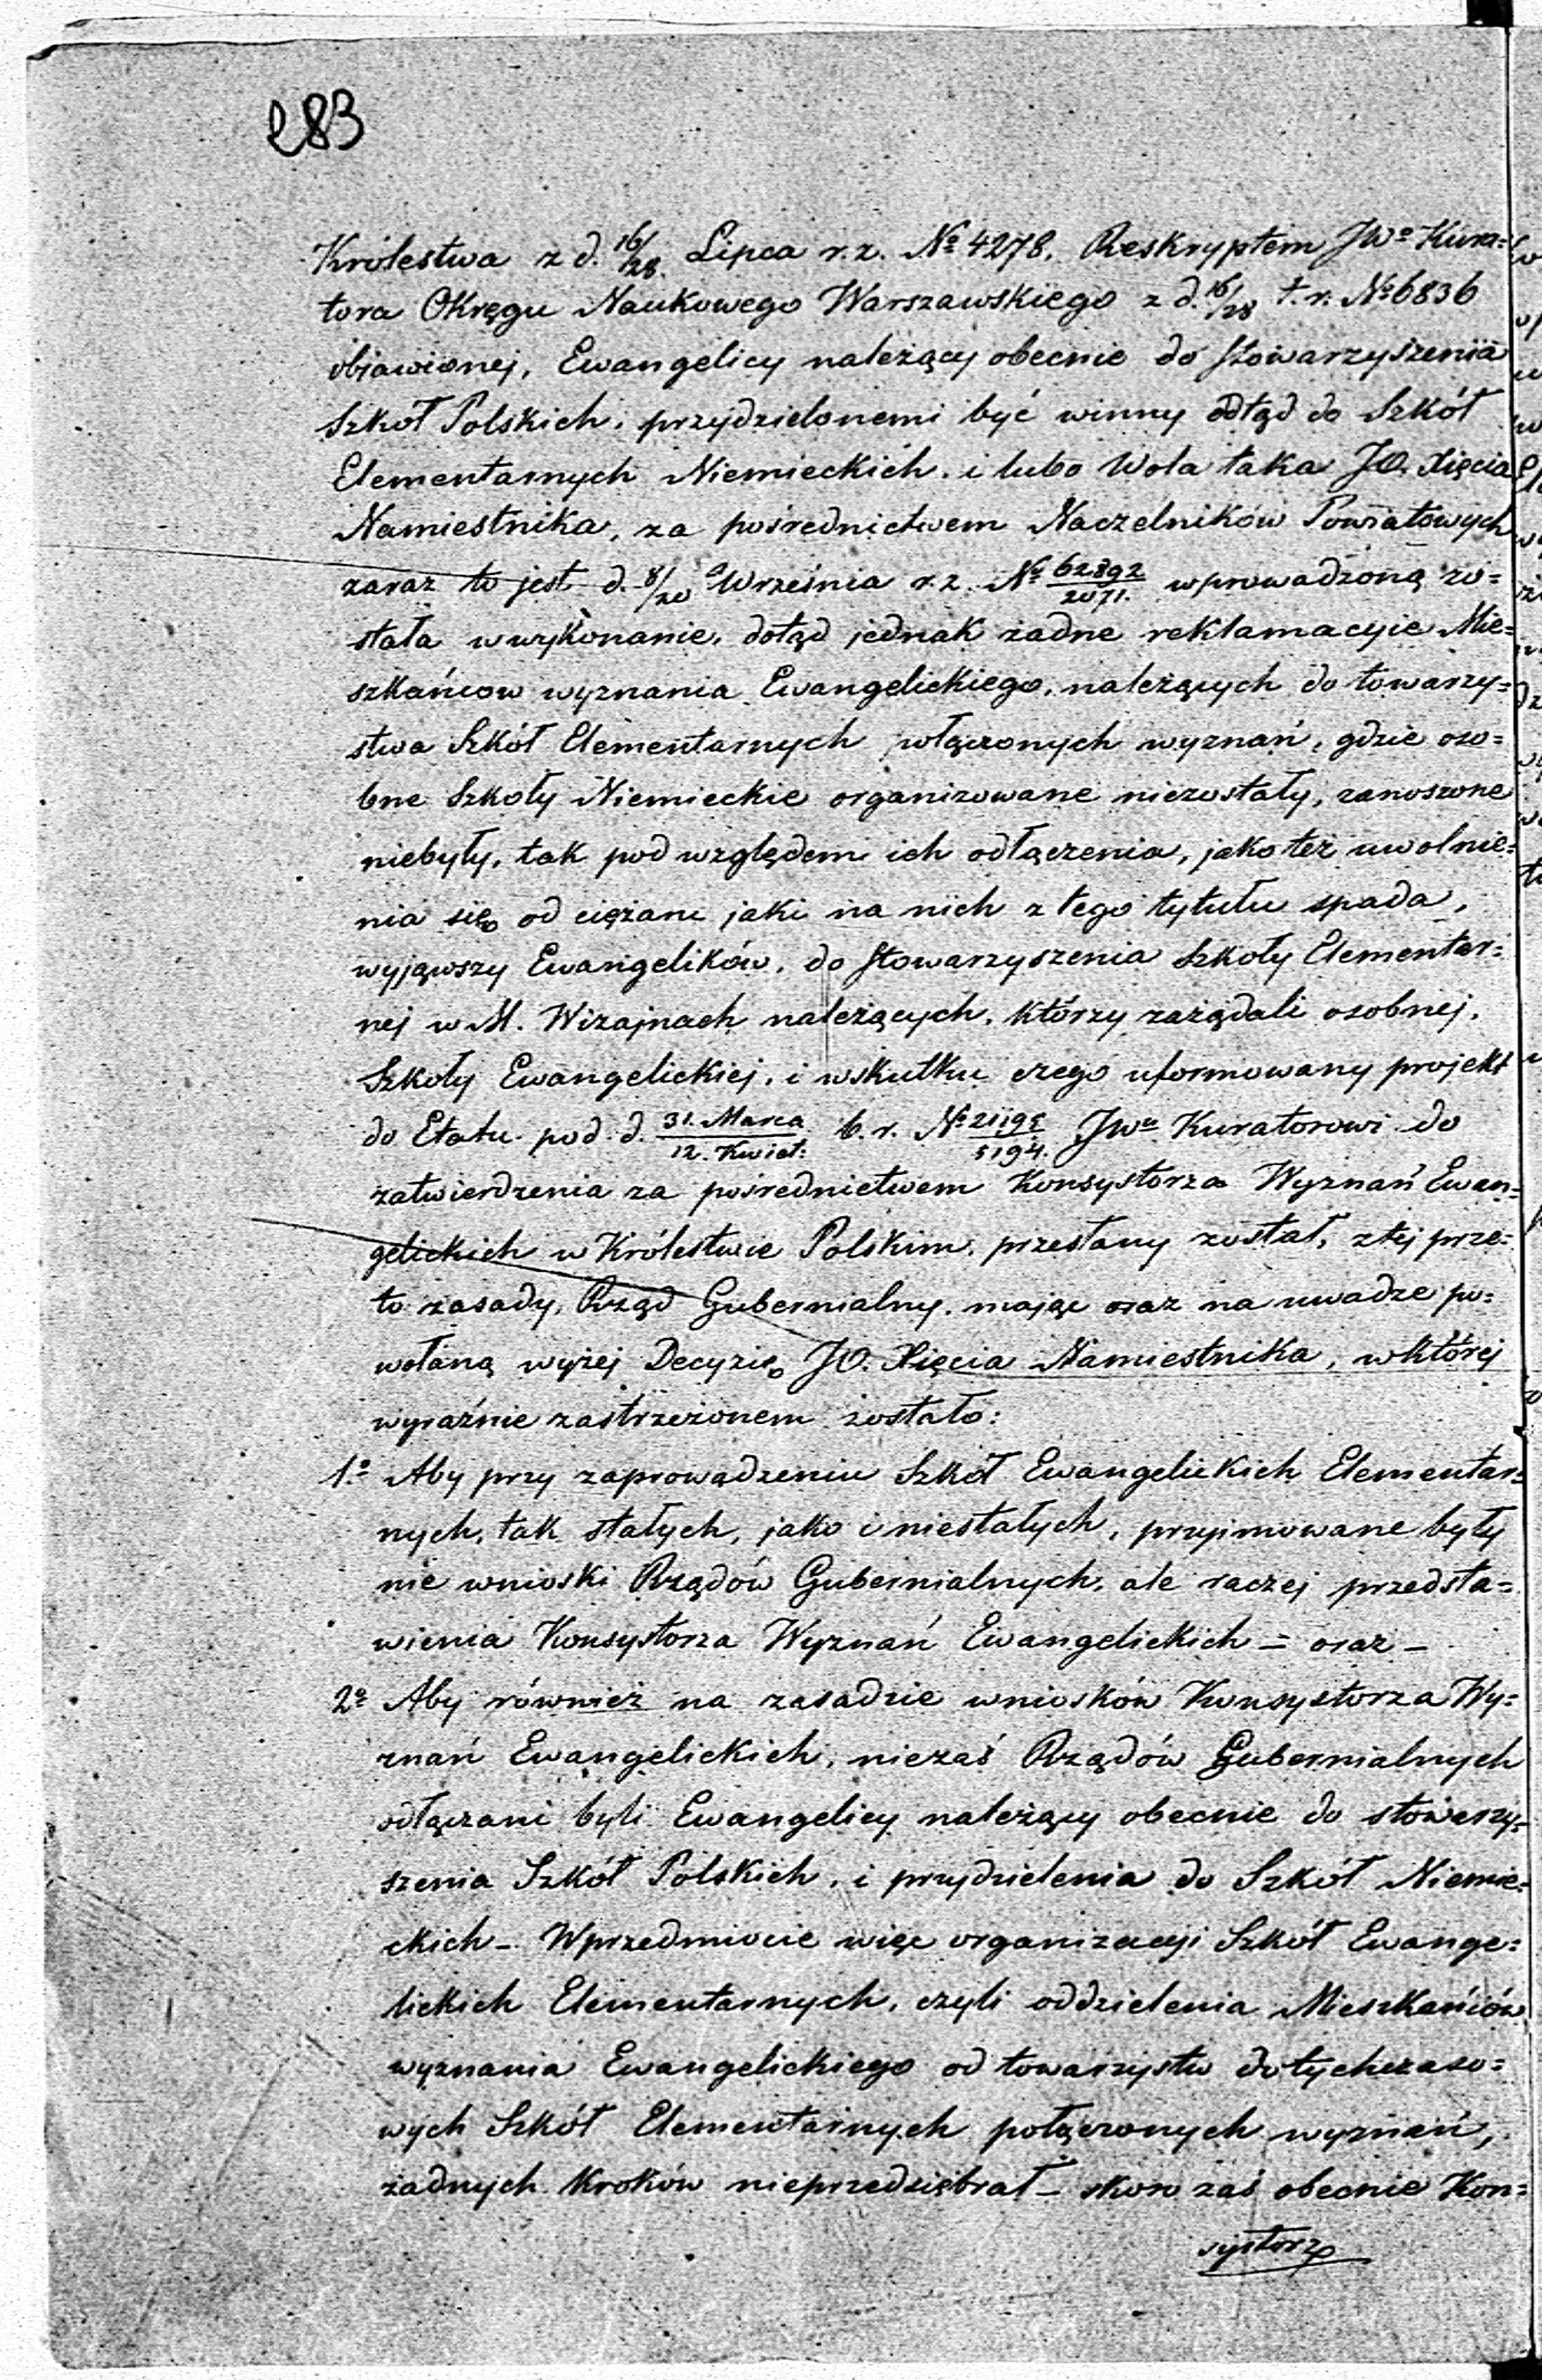 283
Królestwa z d. 16/28. Lipca r. z. № 4278. Reskryptem JWº Kura=
tora Okręgu Naukowego Warszawskiego z d. 16/28 t. r. № 6836
objawionej, Ewangelicy należący obecnie do Stowarzyszenia
Szkół Polskich, przydzielonemi być winny odtąd do Szkół
Elementarnych Niemieckich. i lubo Wola taka JO. Xięcia
Namiestnika, za pośrednictwem Naczelników Powiatowych
zaraz to jest d. 8/20 Września r. z. № 62892/2071. wprowadzoną zo=
stała w wykonanie, dotąd jednak żadne reklamacyie Mie=
szkańcow wyznania Ewangelickiego, należących do towarzy=
stwa Szkół Elementarnych włączonych wyznań, gdzie oso=
bne Szkoły Niemieckie organizowane niezostały, zanoszone
niebyły, tak pod względem ich odłączenia, jako też uwolnie=
nia się od ciężaru jaki na nich z tego tytułu spada,
wyjąwszy Ewangelików, do Stowarzyszenia Szkoły Elementar=
nej w M. Wizajnach należących, którzy zażądali osobnej,
Szkoły Ewangelickiej, i wskutku czego uformowany projekt
do Etatu pod d. 31. Marca/12. Kwiet: b. r. № 21195/5194. JWu Kuratorowi do
zatwierdzenia za pośrednictwem Konsystorza Wyznań Ewan=
gelickich w Królestwie Polskim, przesłany został, z tej prze=
to zasady, Rząd Gubernialny, mając oraz na uwadze po=
wołaną wyżej Decyzię JO. Xięcia Namiestnika, w której
wyraźnie zastrzeżonem zostało:
1º Aby przy zaprowadzeniu Szkół Ewangelickich Elementar=
nych, tak stałych, jako i niestałych, przyimowane były
nie wnioski Rządów Gubernialnych, ale raczej przedsta=
wienia Konsystorza Wyznań Ewangelickich = oraz –
2º Aby również na zasadzie wniosków Konsystorza Wy=
znań Ewangelickich, niezaś Rządów Gubernialnych
odłączani byli Ewangelicy należący obecnie do stowarzy=
szenia Szkół Polskich, i przydzielenia do Szkół Niemie=
ckich – Wprzedmiocie więc organizacyi Szkół Ewange=
lickich Elementarnych, czyli oddzielenia Mieszkańców
wyznania Ewangelickiego od towarzystw dotychczaso=
wych Szkół Elementarnych połączonych wyznań,
żadnych kroków nieprzedsiębrał – skoro zaś obecnie Kon=
systorz